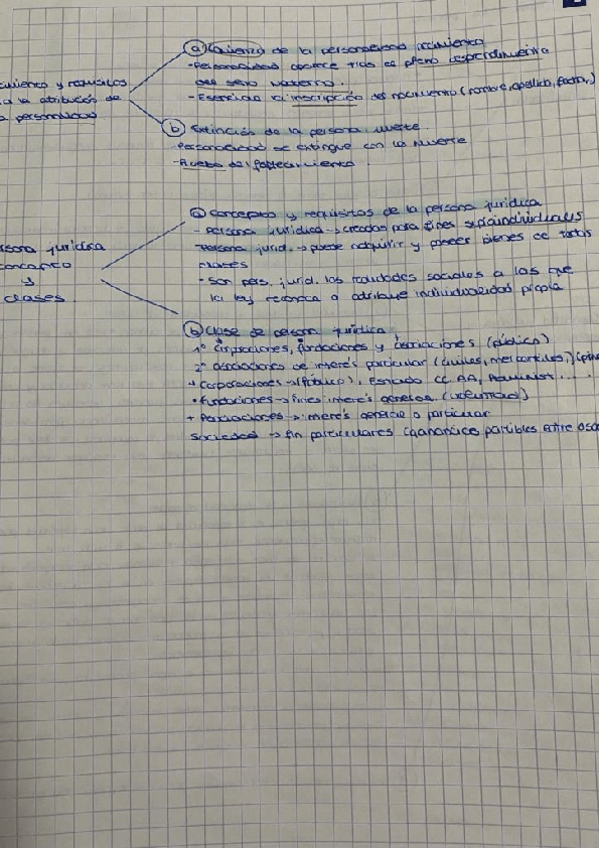 a) Comienzo de la personalidad nacimiento
- Personalidad aparece tras el pleno desprendimiento
del seno materno.
- Esencial la inscripción del nacimiento (nombre, apellido, fecha,)
y requisitos
a la atribución de
personalidad
b) Extinción de la persona muerte
Personalidad se extingue con la muerte
- Prueba del fallecimiento
a) Concepto y requisitos de la persona jurídica
- Persona jurídica → creadas para fines supraindividuales
- Persona jurid. → puede adquirir y poseer bienes de todas
clases
- Son pers. jurid. las realidades sociales a las que
la ley reconoce o atribuye individualidad propia
jurídica
concepto
y
clases
b) Clase de persona jurídica
1º Corporaciones, fundaciones y asociaciones (público)
2º asociaciones de interés particular (civiles, mercantiles,)
Corporaciones → (Público), Estado CC.AA, Administ...
• fundaciones → fines interés general
+ Asociaciones → interés general o particular
Sociedad → fin particulares (ganancias partibles entre